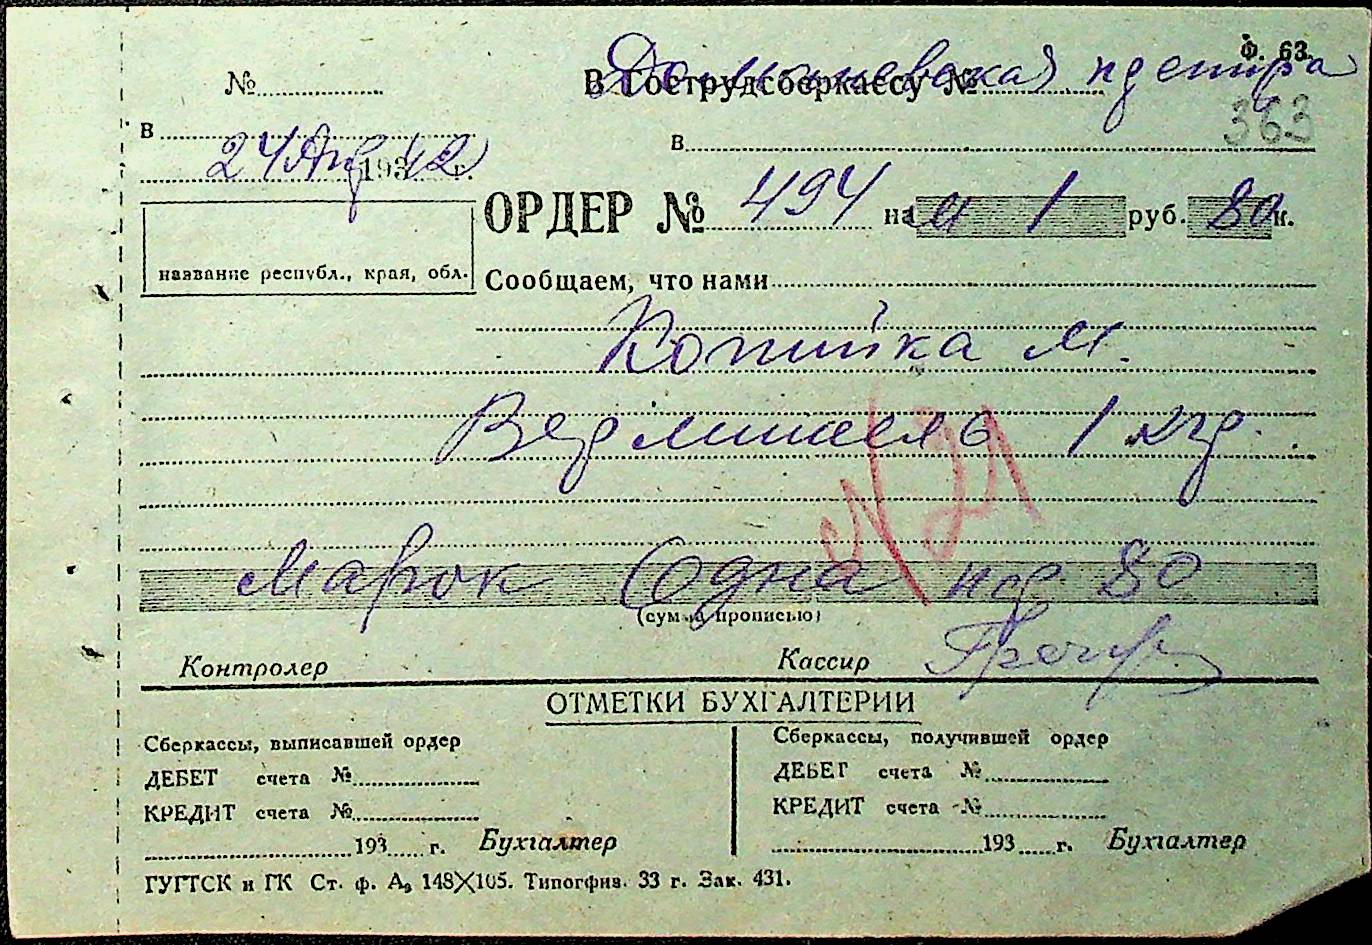 Ф. 63.
№
В Гострудсберкассу №
363
в
в
24 Апр 193 42 г.
ОРДЕР № 494 на М 1 руб. 80 к.
название республ., края, обл.
Сообщаем, что нами
Копийка М.
Вермишеля 1 кгр.
N 21
Марок Одна пф. 80
(сумма прописью)
Контролер Кассир
ОТМЕТКИ БУХГАЛТЕРИИ
Сберкассы, выписавшей ордер
ДЕБЕТ счета №
КРЕДИТ счета №
193 г. Бухгалтер
Сберкассы, получившей ордер
ДЕБЕТ счета №
КРЕДИТ счета №
193 г. Бухгалтер
ГУГТСК и ГК Ст. ф. А₅ 148×105. Типогфиз. 33 г. Зак. 431.